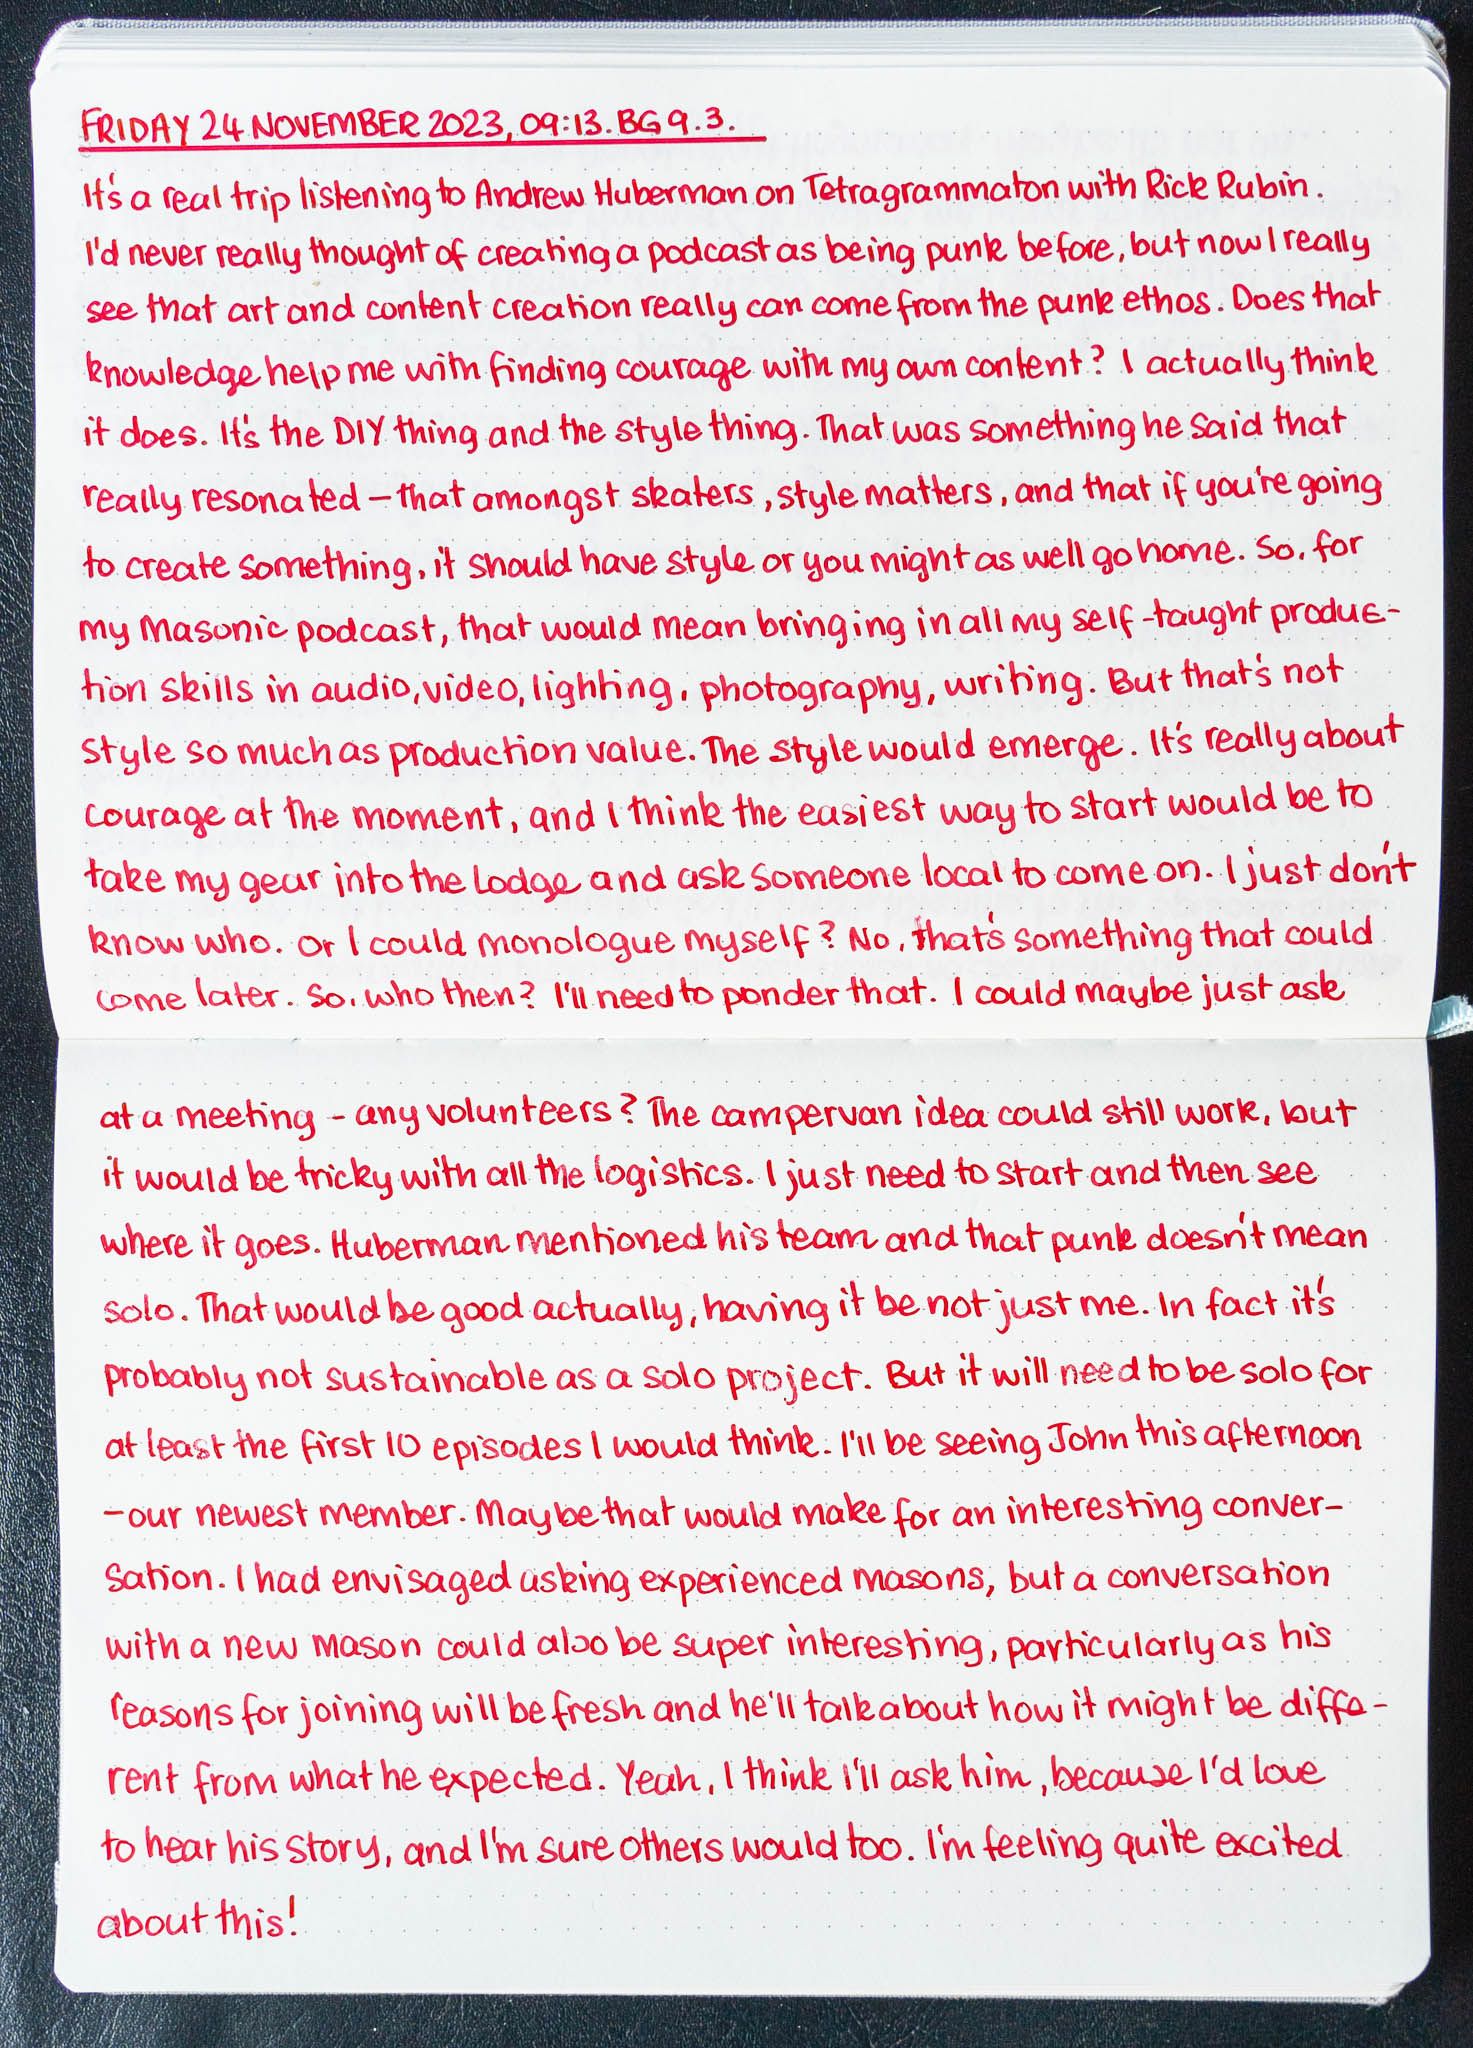 FRIDAY 24 NOVEMBER 2023, 09:13. BG 9.3.
It's a real trip listening to Andrew Huberman on Tetragrammaton with Rick Rubin.
I'd never really thought of creating a podcast as being punk before, but now I really
see that art and content creation really can come from the punk ethos. Does that
knowledge help me with finding courage with my own content? I actually think
it does. It's the DIY thing and the style thing. That was something he said that
really resonated – that amongst skaters, style matters, and that if you're going
to create something, it should have style or you might as well go home. So, for
my Masonic podcast, that would mean bringing in all my self-taught produc-
tion skills in audio, video, lighting, photography, writing. But that's not
style so much as production value. The style would emerge. It's really about
courage at the moment, and I think the easiest way to start would be to
take my gear into the Lodge and ask someone local to come on. I just don't
know who. Or I could monologue myself? No, that's something that could
come later. So, who then? I'll need to ponder that. I could maybe just ask
at a meeting – any volunteers? The campervan idea could still work, but
it would be tricky with all the logistics. I just need to start and then see
where it goes. Huberman mentioned his team and that punk doesn't mean
solo. That would be good actually, having it be not just me. In fact it's
probably not sustainable as a solo project. But it will need to be solo for
at least the first 10 episodes I would think. I'll be seeing John this afternoon
– our newest member. Maybe that would make for an interesting conver-
sation. I had envisaged asking experienced masons, but a conversation
with a new mason could also be super interesting, particularly as his
reasons for joining will be fresh and he'll talk about how it might be diffe-
rent from what he expected. Yeah, I think I'll ask him, because I'd love
to hear his story, and I'm sure others would too. I'm feeling quite excited
about this!